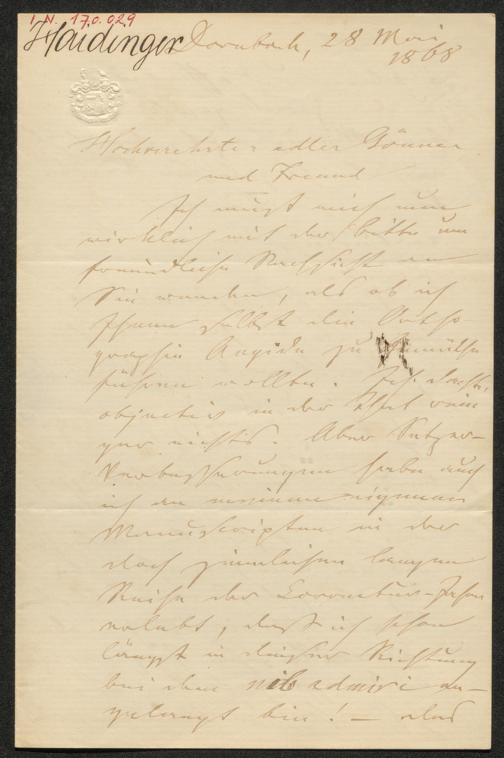 I. N. 170.029
Haidinger
Dornbach, 28 Mai
1868
Hochverehrter edler Gönner
und Freund
Ich muß mich nun
wirklich mit der Bitte um
freundliche Nachsicht an
Sie wenden, als ob ich
Ihnen selbst die Ortho-
graphie Aegide zu Gemüthe
führen wollte. Ich dachte
objectiv in der That rein
gar nichts. Aber Setzer-
Verbesserungen habe auch
ich an meinen eigenen
Manuscripten in der
doch ziemlichen langen
Reihe der Correctur-Jahre
erlebt, daß ich schon
längst in dieser Richtung
bei dem nil admirari an-
gelangt bin! — als